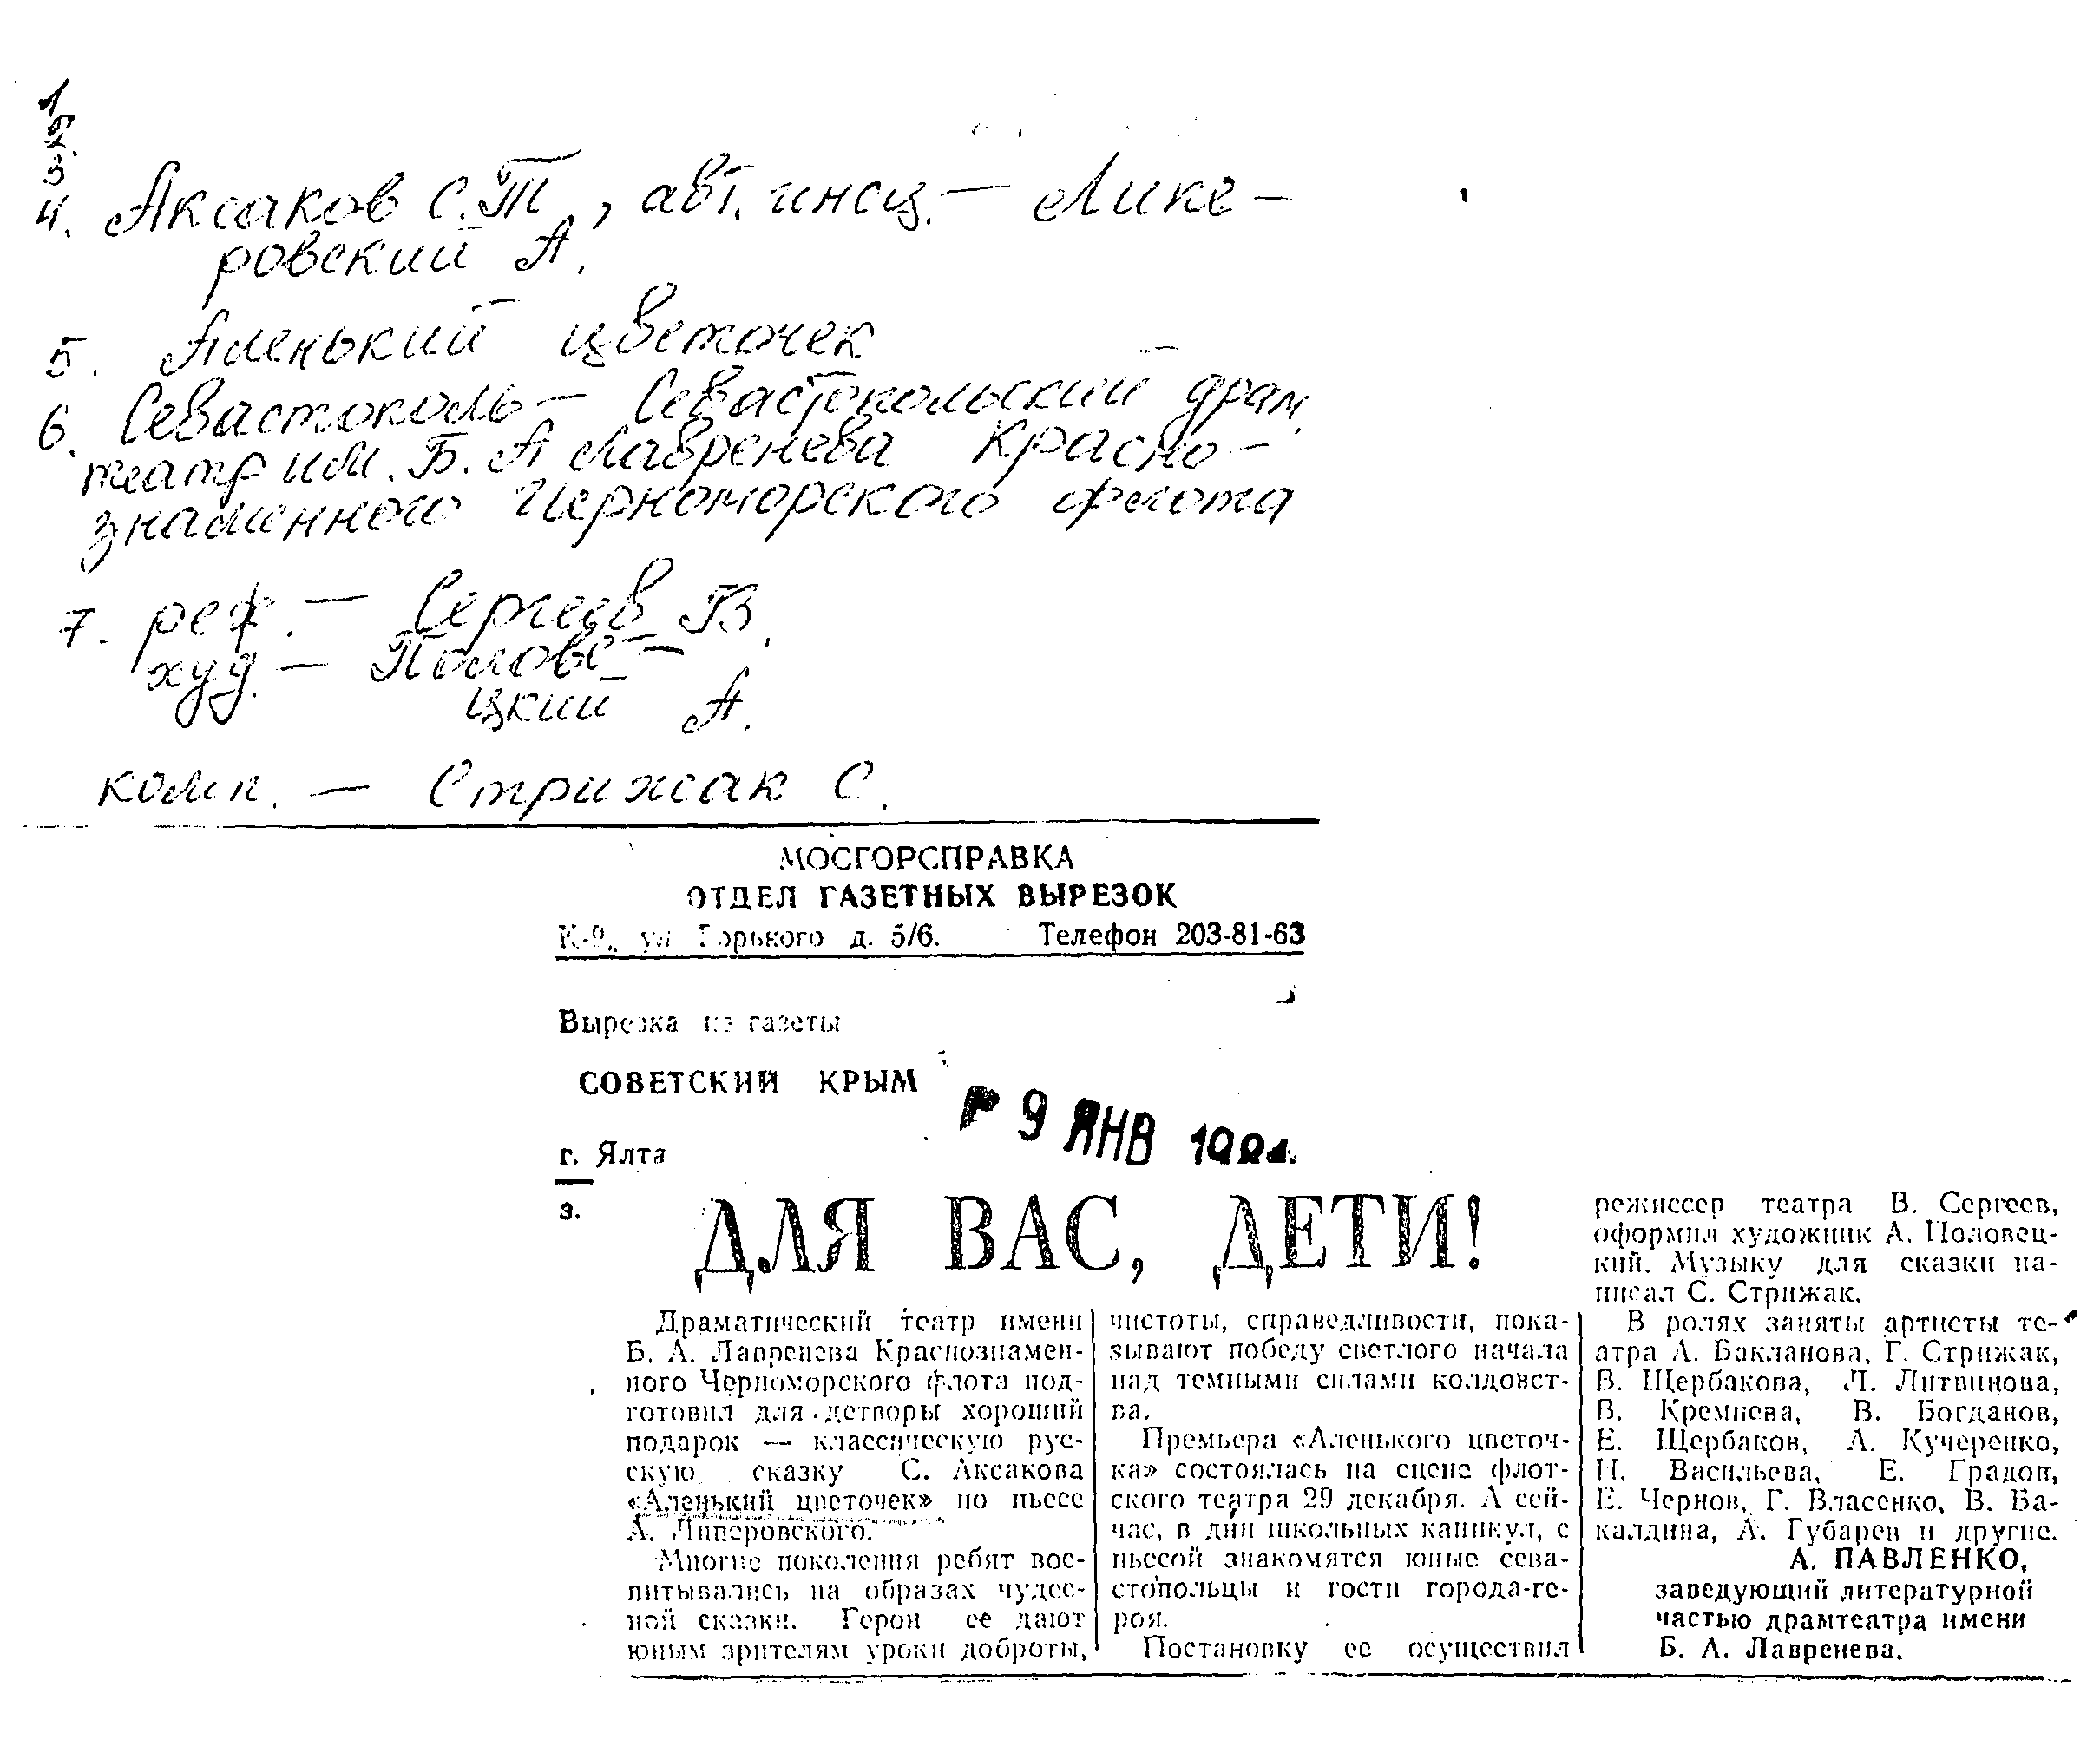 1
2.
3
4. Аксаков С.Т., авт. инсц. — Липе-
ровский А.
5. Аленький цветочек
6. Севастополь — Севастопольский драм.
театр им. Б. А Лавренева Красно-
знаменного Черноморского флота
7. реж. — Сергеев В.
худ. — Полове-
цкий А.
комп. — Стрижак С.
МОСГОРСПРАВКА
ОТДЕЛ ГАЗЕТНЫХ ВЫРЕЗОК
К-9, ул Горького д. 5/6. Телефон 203-81-63
Вырезка из газеты
СОВЕТСКИЙ КРЫМ
9 ЯНВ
г. Ялта
з.
ДЛЯ ВАС, ДЕТИ!
Драматический театр имени
Б. А. Лавренева Краснознамен-
ного Черноморского флота под-
готовил для детворы хороший
подарок — классическую рус-
скую сказку С. Аксакова
«Аленький цветочек» по пьесе
А. Липеровского.
Многие поколения ребят вос-
питывались на образах чудес-
ной сказки. Герои ее дают
юным зрителям уроки доброты,
чистоты, справедливости, пока-
зывают победу светлого начала
над темными силами колдовст-
ва.
Премьера «Аленького цветоч-
ка» состоялась на сцене флот-
ского театра 29 декабря. А сей-
час, в дни школьных каникул, с
пьесой знакомятся юные сева-
стопольцы и гости города-ге-
роя.
Постановку ее осуществил
режиссер театра В. Сергеев,
оформил художник А. Половец-
кий. Музыку для сказки на-
писал С. Стрижак.
В ролях заняты артисты те-
атра А. Бакланова, Г. Стрижак,
В. Щербакова, Л. Литвинова,
В. Кремнева, В. Богданов,
Е. Щербаков, А. Кучеренко,
Н. Васильева, Е. Градов,
Е. Чернов, Г. Власенко, В. Ба-
калдина, А. Губарев и другие.
А. ПАВЛЕНКО,
заведующий литературной
частью драмтеатра имени
Б. А. Лавренева.